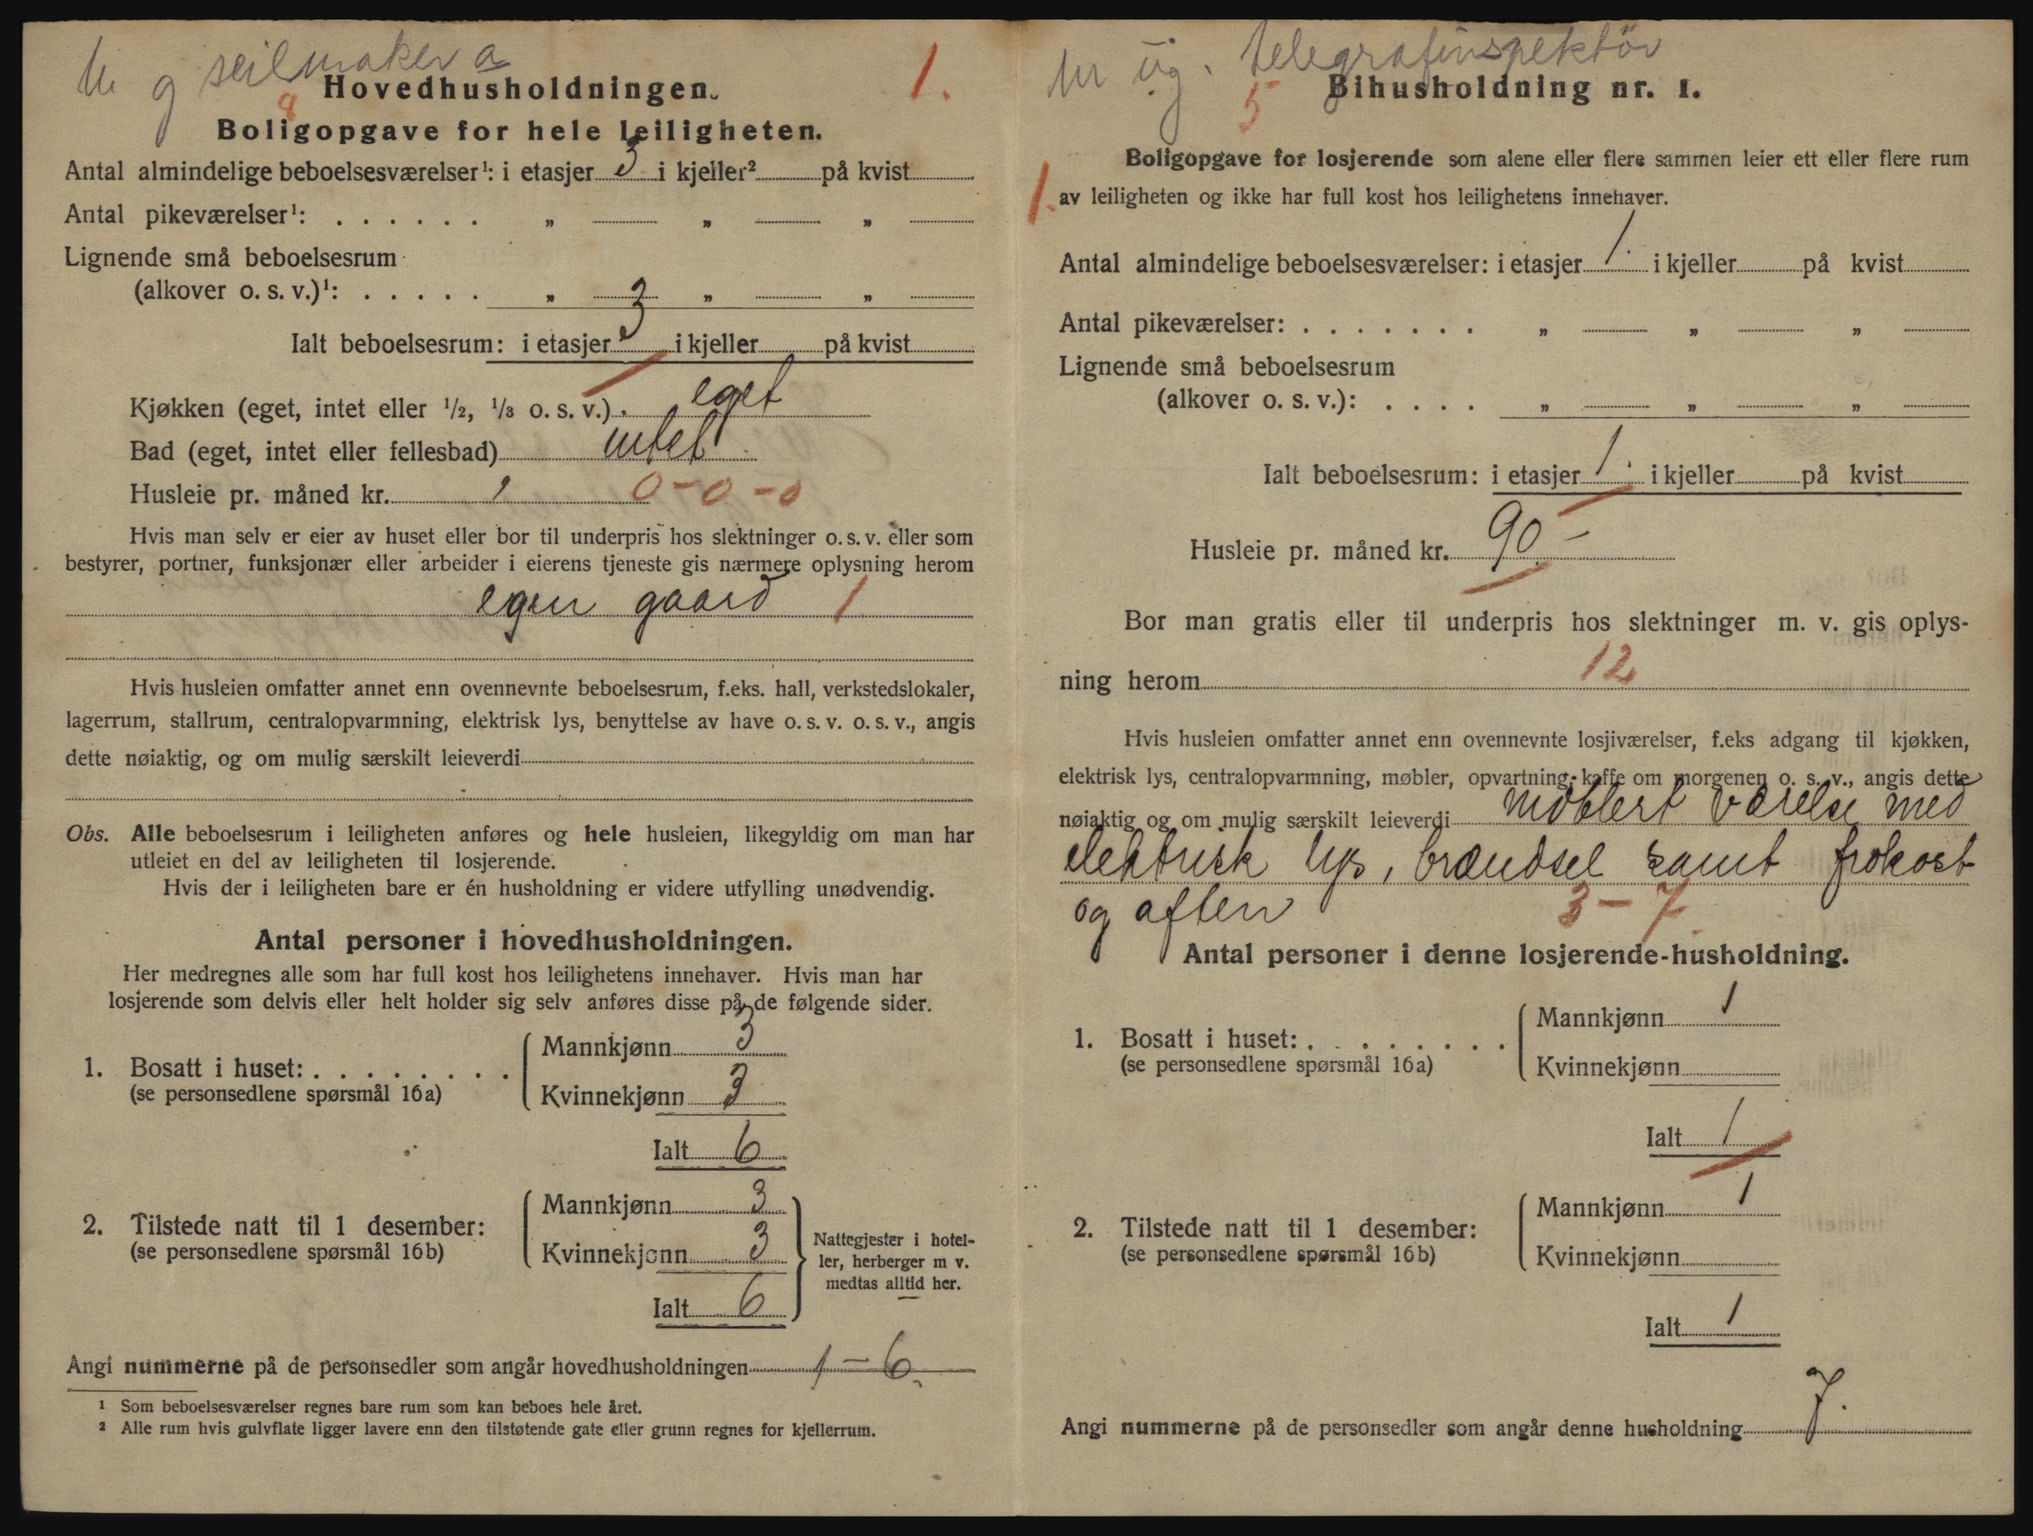 m g seilmaker a
Hovedhusholdningen.
1.
Boligopgave for hele leiligheten.
Antal almindelige beboelsesværelser¹: i etasjer 3 i kjeller² på kvist
Antal pikeværelser¹: . . . . . . „ „ „
Lignende små beboelsesrum
(alkover o. s. v.)¹: . . . . . „ „ „
Ialt beboelsesrum: i etasjer 3 i kjeller på kvist
Kjøkken (eget, intet eller 1/2, 1/3 o. s. v.) . eget
Bad (eget, intet eller fellesbad) intet
Husleie pr. måned kr. 0-0-0
Hvis man selv er eier av huset eller bor til underpris hos slektninger o. s. v. eller som
bestyrer, portner, funksjonær eller arbeider i eierens tjeneste gis nærmere oplysning herom
egen gaard 1
Hvis husleien omfatter annet enn ovennevnte beboelsesrum, f.eks. hall, verkstedslokaler,
lagerrum, stallrum, centralopvarmning, elektrisk lys, benyttelse av have o. s. v. o. s. v., angis
dette nøiaktig, og om mulig særskilt leieverdi
Obs. Alle beboelsesrum i leiligheten anføres og hele husleien, likegyldig om man har
utleiet en del av leiligheten til losjerende.
Hvis der i leiligheten bare er én husholdning er videre utfylling unødvendig.
Antal personer i hovedhusholdningen.
Her medregnes alle som har full kost hos leilighetens innehaver. Hvis man har
losjerende som delvis eller helt holder sig selv anføres disse på de følgende sider.
Mannkjønn 3
1. Bosatt i huset: . . . . . . . .
(se personsedlene spørsmål 16a)
Kvinnekjønn 3
Ialt 6
Mannkjønn 3
2. Tilstede natt til 1 desember:
(se personsedlene spørsmål 16b)
Kvinnekjønn 3
Ialt 6
Nattegjester i hotel-
ler, herberger m v.
medtas alltid her.
Angi nummerne på de personsedler som angår hovedhusholdningen 1 - 6.
¹ Som beboelsesværelser regnes bare rum som kan beboes hele året.
² Alle rum hvis gulvflate ligger lavere enn den tilstøtende gate eller grunn regnes for kjellerrum.
m ug. telegrafinspektör
5
Bihusholdning nr. 1.
Boligopgave for losjerende som alene eller flere sammen leier ett eller flere rum
1. av leiligheten og ikke har full kost hos leilighetens innehaver.
Antal almindelige beboelsesværelser: i etasjer 1. i kjeller på kvist
Antal pikeværelser: . . . . . . . „ „ „
Lignende små beboelsesrum
(alkover o. s. v.): . . . . „ „ „
Ialt beboelsesrum: i etasjer 1. i kjeller på kvist
Husleie pr. måned kr. 90 -
Bor man gratis eller til underpris hos slektninger m. v. gis oplys-
ning herom 12
Hvis husleien omfatter annet enn ovennevnte losjiværelser, f.eks adgang til kjøkken,
elektrisk lys, centralopvarmning, møbler, opvartning, kaffe om morgenen o. s. v., angis dette
nøiaktig og om mulig særskilt leieverdi møblert værelse med
elektrisk lys, brændsel samt frokost
og aften 3 - 7
Antal personer i denne losjerende-husholdning.
Mannkjønn 1
1. Bosatt i huset: . . . . . . . .
(se personsedlene spørsmål 16a)
Kvinnekjønn
Ialt 1
Mannkjønn 1
2. Tilstede natt til 1 desember:
(se personsedlene spørsmål 16b)
Kvinnekjønn
Ialt 1
Angi nummerne på de personsedler som angår denne husholdning 7.